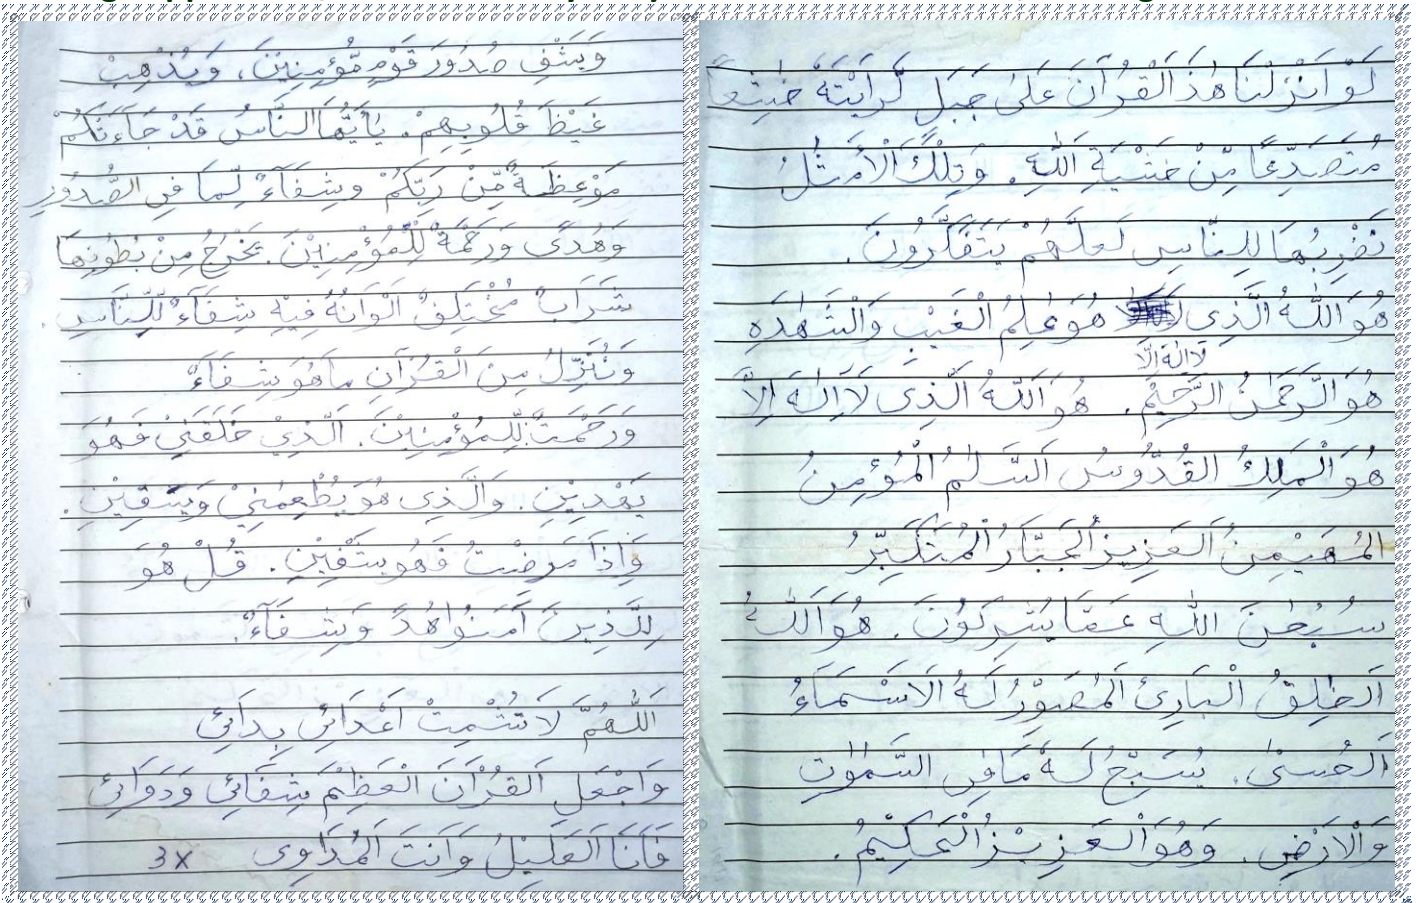 لَوْ اَنْزَلْنَا هٰذَ الْقُرْاٰنَ عَلٰى جَبَلٍ لَّرَاَيْتَهٗ خٰشِعًا
مُتَصَدِّعًا مِّنْ خَشْيَةِ اللهِ. وَتِلْكَ الْاَمْثٰلُ
نَضْرِبُهَا لِلنَّاسِ لَعَلَّهُمْ يَتَفَكَّرُونَ.
هُوَ اللهُ الَّذِى هُوَ عٰلِمُ الْغَيْبِ وَالْشَهٰدَهِ
لَا اِلٰهَ اِلَّا
هُوَ الرَّحْمٰنُ الرَّحِيْمُ. هُوَ اَللهُ الَّذِى لَا اِلٰهَ اِلَّا
هُوَ الْمَلِكُ القُدُّوسُ اَلسَّلٰمُ الْمُؤْمِنُ
المُهَيْمِنُ اَلعَزِيزُ الْجَبَّارُ الْمُتَكَبِّرُ
سُبْحٰنَ اللهِ عَمَّا يُشْرِكُونَ. هُوَ اَللهُ
اَلْخٰلِقُ الْبَارِئُ اَلمُصَوِّرُ لَهُ الَاسْمَاءُ
اَلحُسنٰى. يُسَبِّحُ لَهٗ مَافِى السَّمٰوٰتِ
وَالْاَرْضِ. وَهُوَ الْعَزِيْزُ الْحَكِيْمُ.
وَيَشْفِ صُدُورَ قَوْمٍ مُّؤْمِنِيْنَ، وَيُذْهِبْ
غَيْظَ قُلُوبِهِمْ. يٰاَيُّهَا النَّاسُ قَدْ جَاءَتْكُمْ
مَوْعِظَةٌ مِّنْ رَبِّكُمْ وَشِفَآءٌ لِّمَا فِى الصُّدُوْرِ
وَهُدًى وَرَحْمَةٌ لِّلْمُؤْمِنِيْنَ. يَخْرُجُ مِنْ بُطُونِهَا
شَرَابٌ مُخْتَلِفٌ اَلْوَانُهٗ فِيْهِ شِفَآءٌ لِّلنَّاسِ.
وَنُنَزِّلُ مِنَ الْقُرْآنِ مَاهُوَ شِفَآءٌ
وَرَحْمَتٌ لِّلمُؤْمِنِيْنَ. اَلَّذِيْ خَلَقَنِيْ فَهُوَ
يَهْدِيْنِ. وَالَّذِى هُوَ يُطْعِمُنِيْ وَيَسْقِيْنِ.
وَاِذَا مَرِضْتُ فَهُوَ يشَفِيْنِ. قُلْ هُوَ
لِلَّذِيْنَ آمَنُوا هُدً وَشِفَآءٌ.
اَللّٰهُمَّ لَا تُشْمِتْ اَعْدَائِى بِدَائِى
وَاجْعَلِ اَلقُرْاٰنَ الْعَظِيْمَ شِفَائِى وَدَوَائِى
فَاَنَا اَلعَلِيْلُ وَاَنْتَ اَلمُدَاوِى 3x